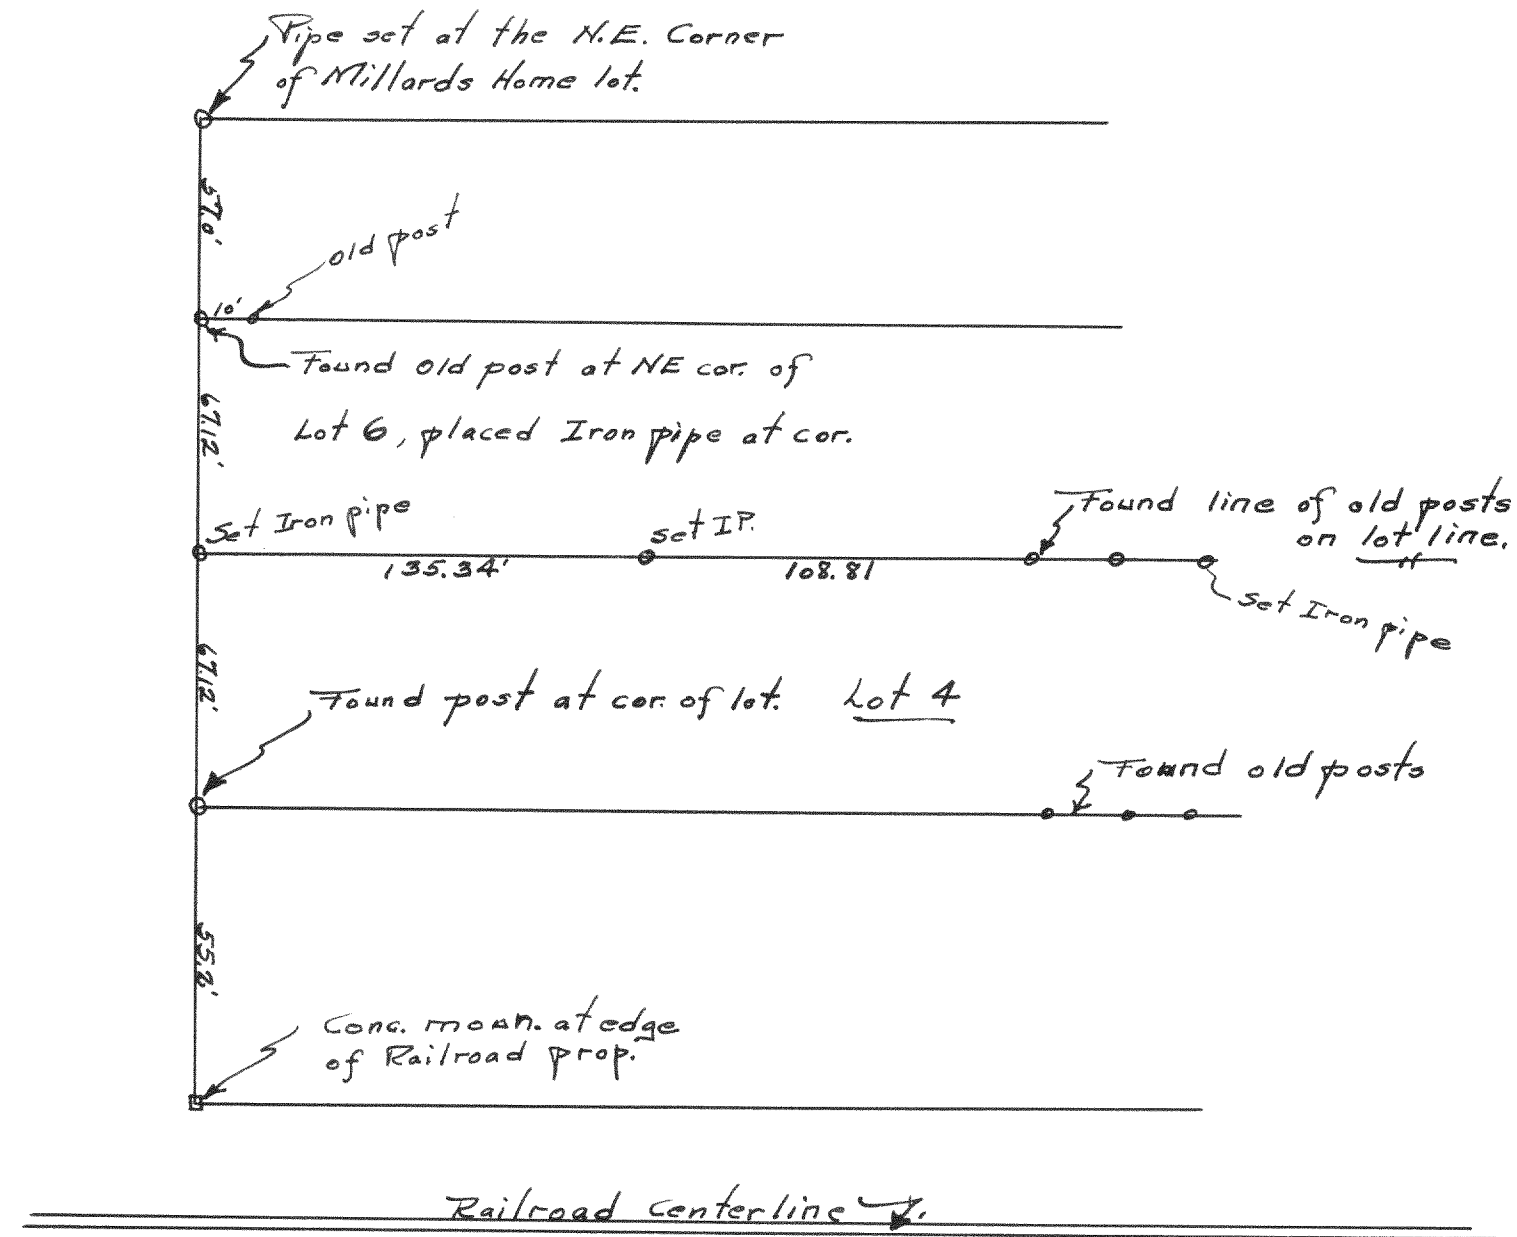 Pipe set at the N.E. Corner
of Millards Home lot.
57.0'
old post
10'
Found old post at NE cor. of
Lot 6, placed Iron pipe at cor.
67.12'
Set Iron pipe
set I.P.
Found line of old posts
on lot line.
135.34'
108.81
set Iron pipe
67.12'
Found post at cor. of lot. Lot 4
Found old posts
55.2'
Conc. moun. at edge
of Railroad prop.
Railroad Centerline